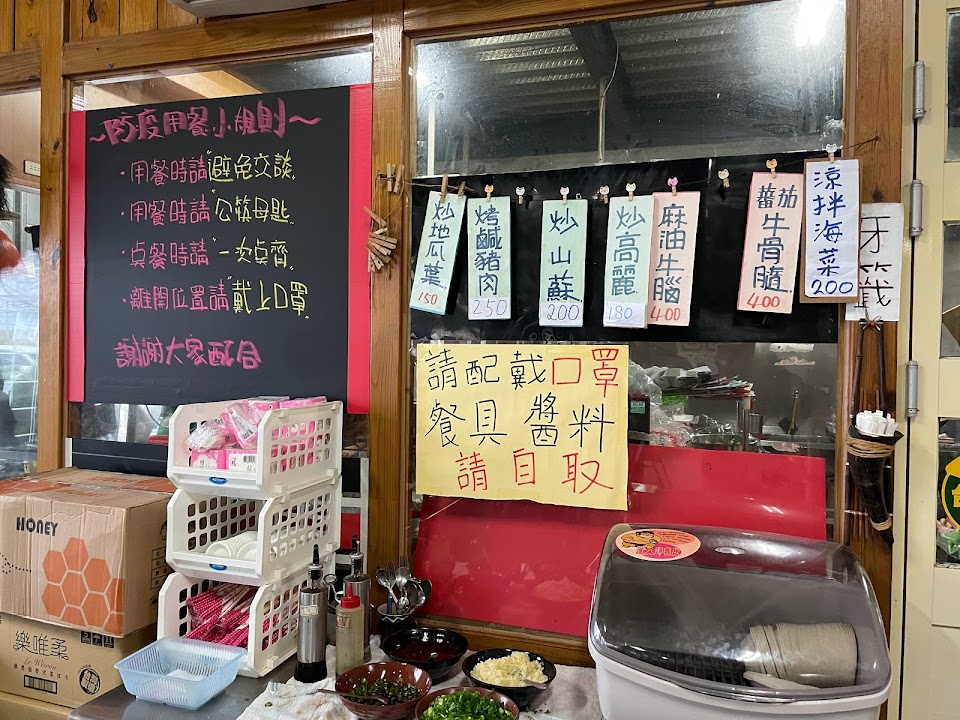 ～防疫用餐小規則～
·用餐時請"避免交談"
·用餐時請"公筷母匙"
·点餐時請"一次点齊"
·離開位置請"戴上口罩"
謝謝大家配合
炒地瓜葉
150
烤鹹豬肉
250
炒山蘇
200
炒高麗
180
麻油牛腦
400
蕃茄牛骨髓
400
涼拌海菜
200
牙籤
請配戴口罩
餐具 醬料
請自取
HONEY
樂唯柔